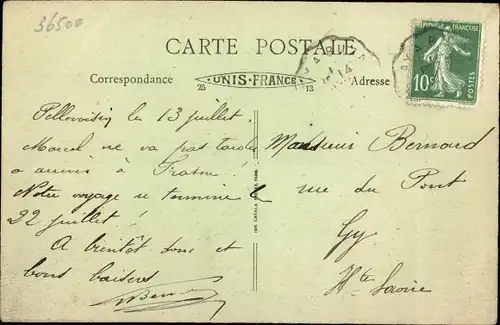 36500
CARTE POSTALE
Correspondance
25 UNIS-FRANCE 13
Adresse
RÉPUBLIQUE FRANÇAISE
10c
POSTES
14
Pellevoisin le 13 juillet.
Marcel ne va pas tarder
a arriver à
Notre voyage se termine le
22 juillet!
A bientôt donc et
bons baisers
Monsieur Bernard
rue du Pont
Gy
Hte Savoie
IMP. CATALA FRÈRES, PARIS